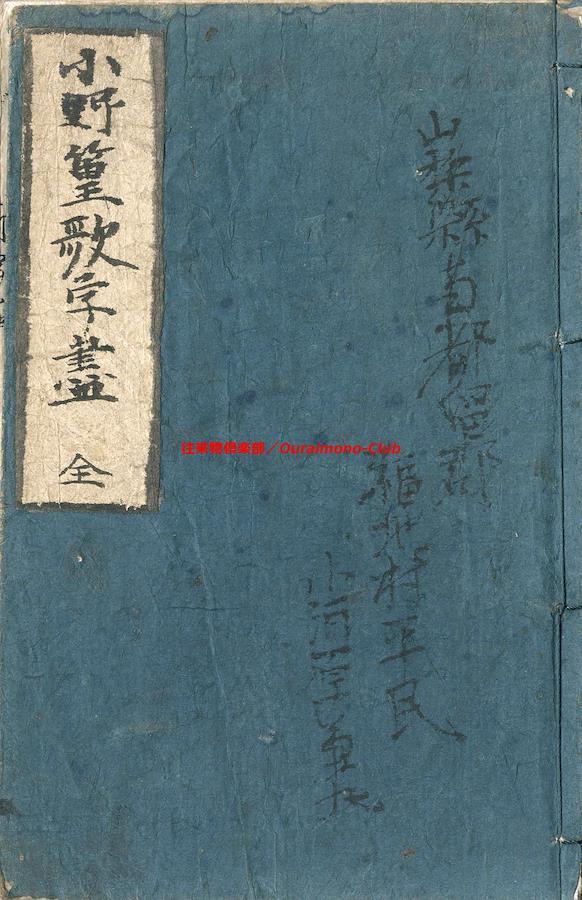 山梨縣南都留郡
福地村平民
小河
小野篁歌字盡 全
往来物倶楽部／Ouraimono-Club